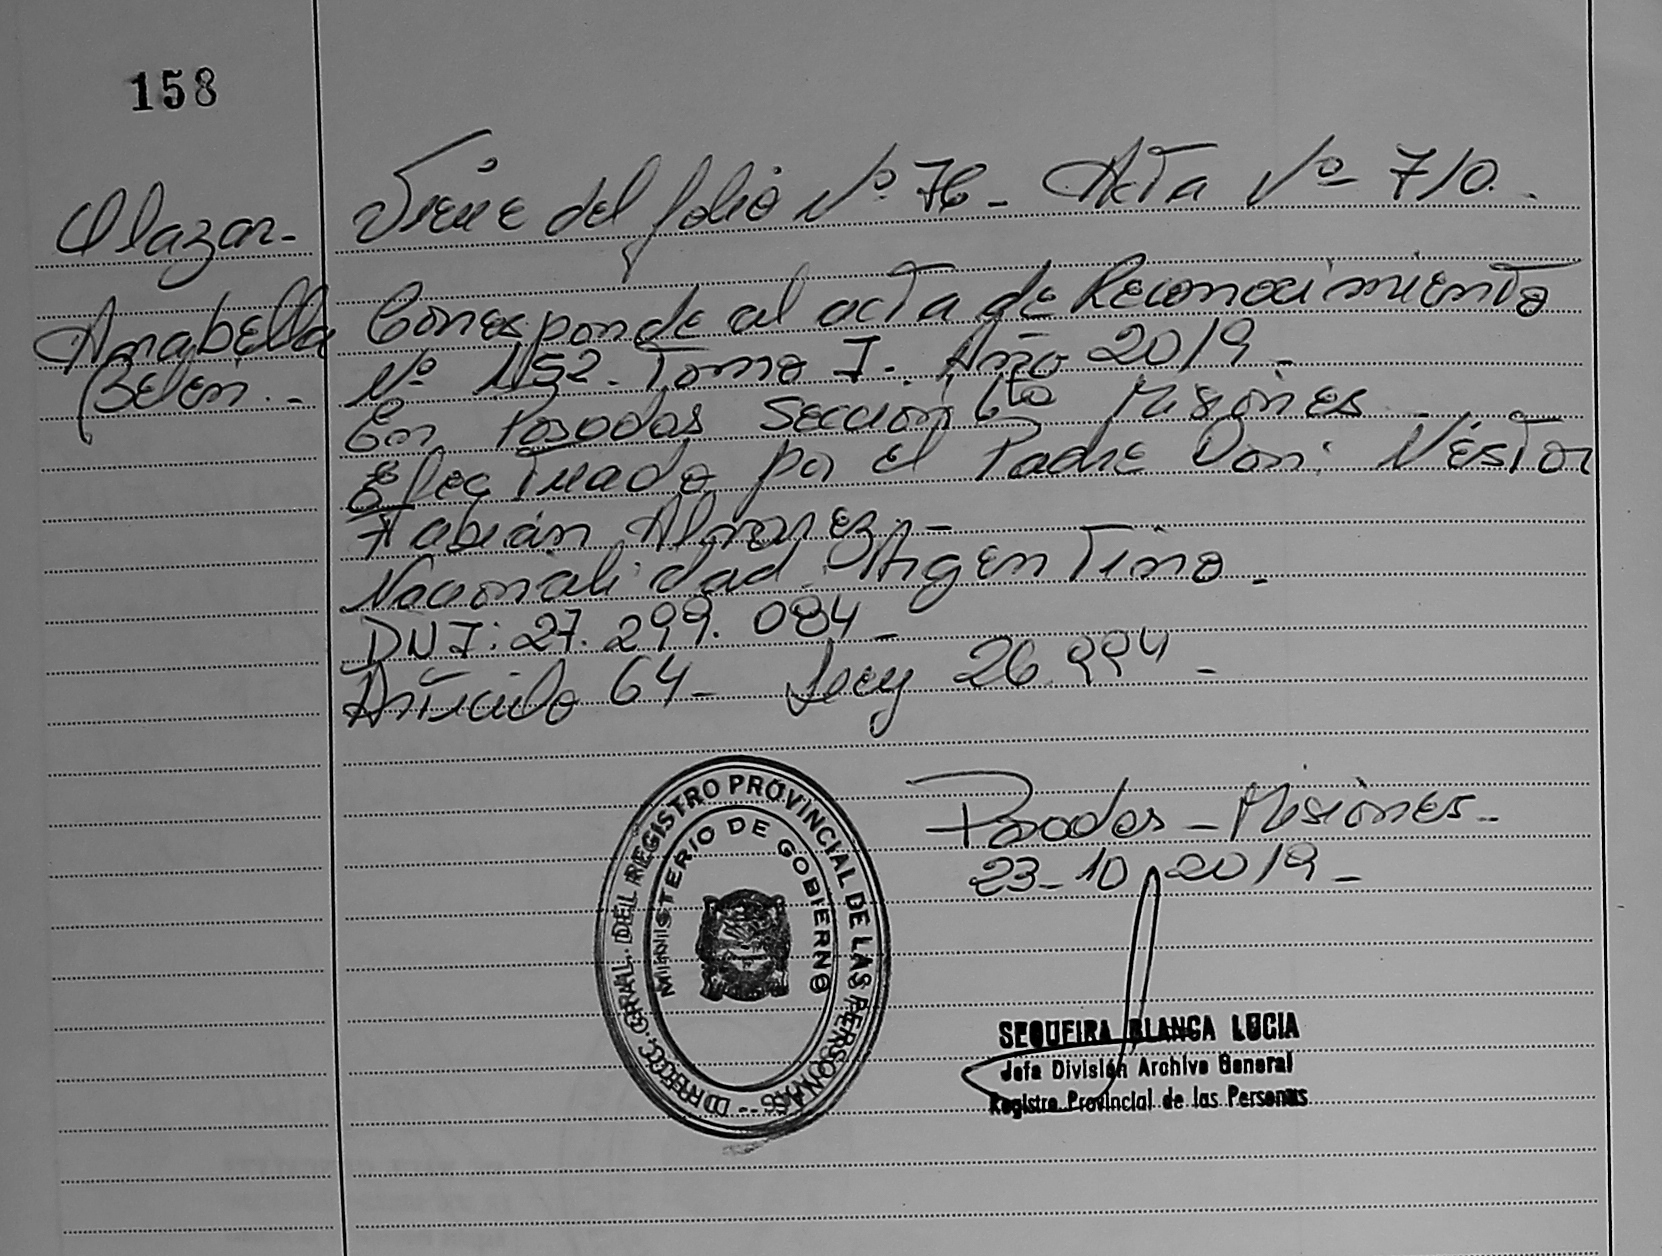 158
Olazar.- Viene del folio Nº 76- Acta Nº 710.
Anabella Corresponde al acta de Reconocimiento
Belén.- Nº 1152. Tomo I. Año 2019-
En Posadas Sección 6ta Misiones
Efectuado por el Padre Don: Néstor
Fabián Alvarez.-
Nacionalidad Argentino.
DNI: 27.299.084-
Artículo 64- Ley 26.994-
Posadas - Misiones.-
23-10-2019-
DIRECC. GRAL. DEL REGISTRO PROVINCIAL DE LAS PERSONAS
MINISTERIO DE GOBIERNO
SEQUEIRA BLANCA LUCIA
Jefa División Archivo General
Registro Provincial de las Personas